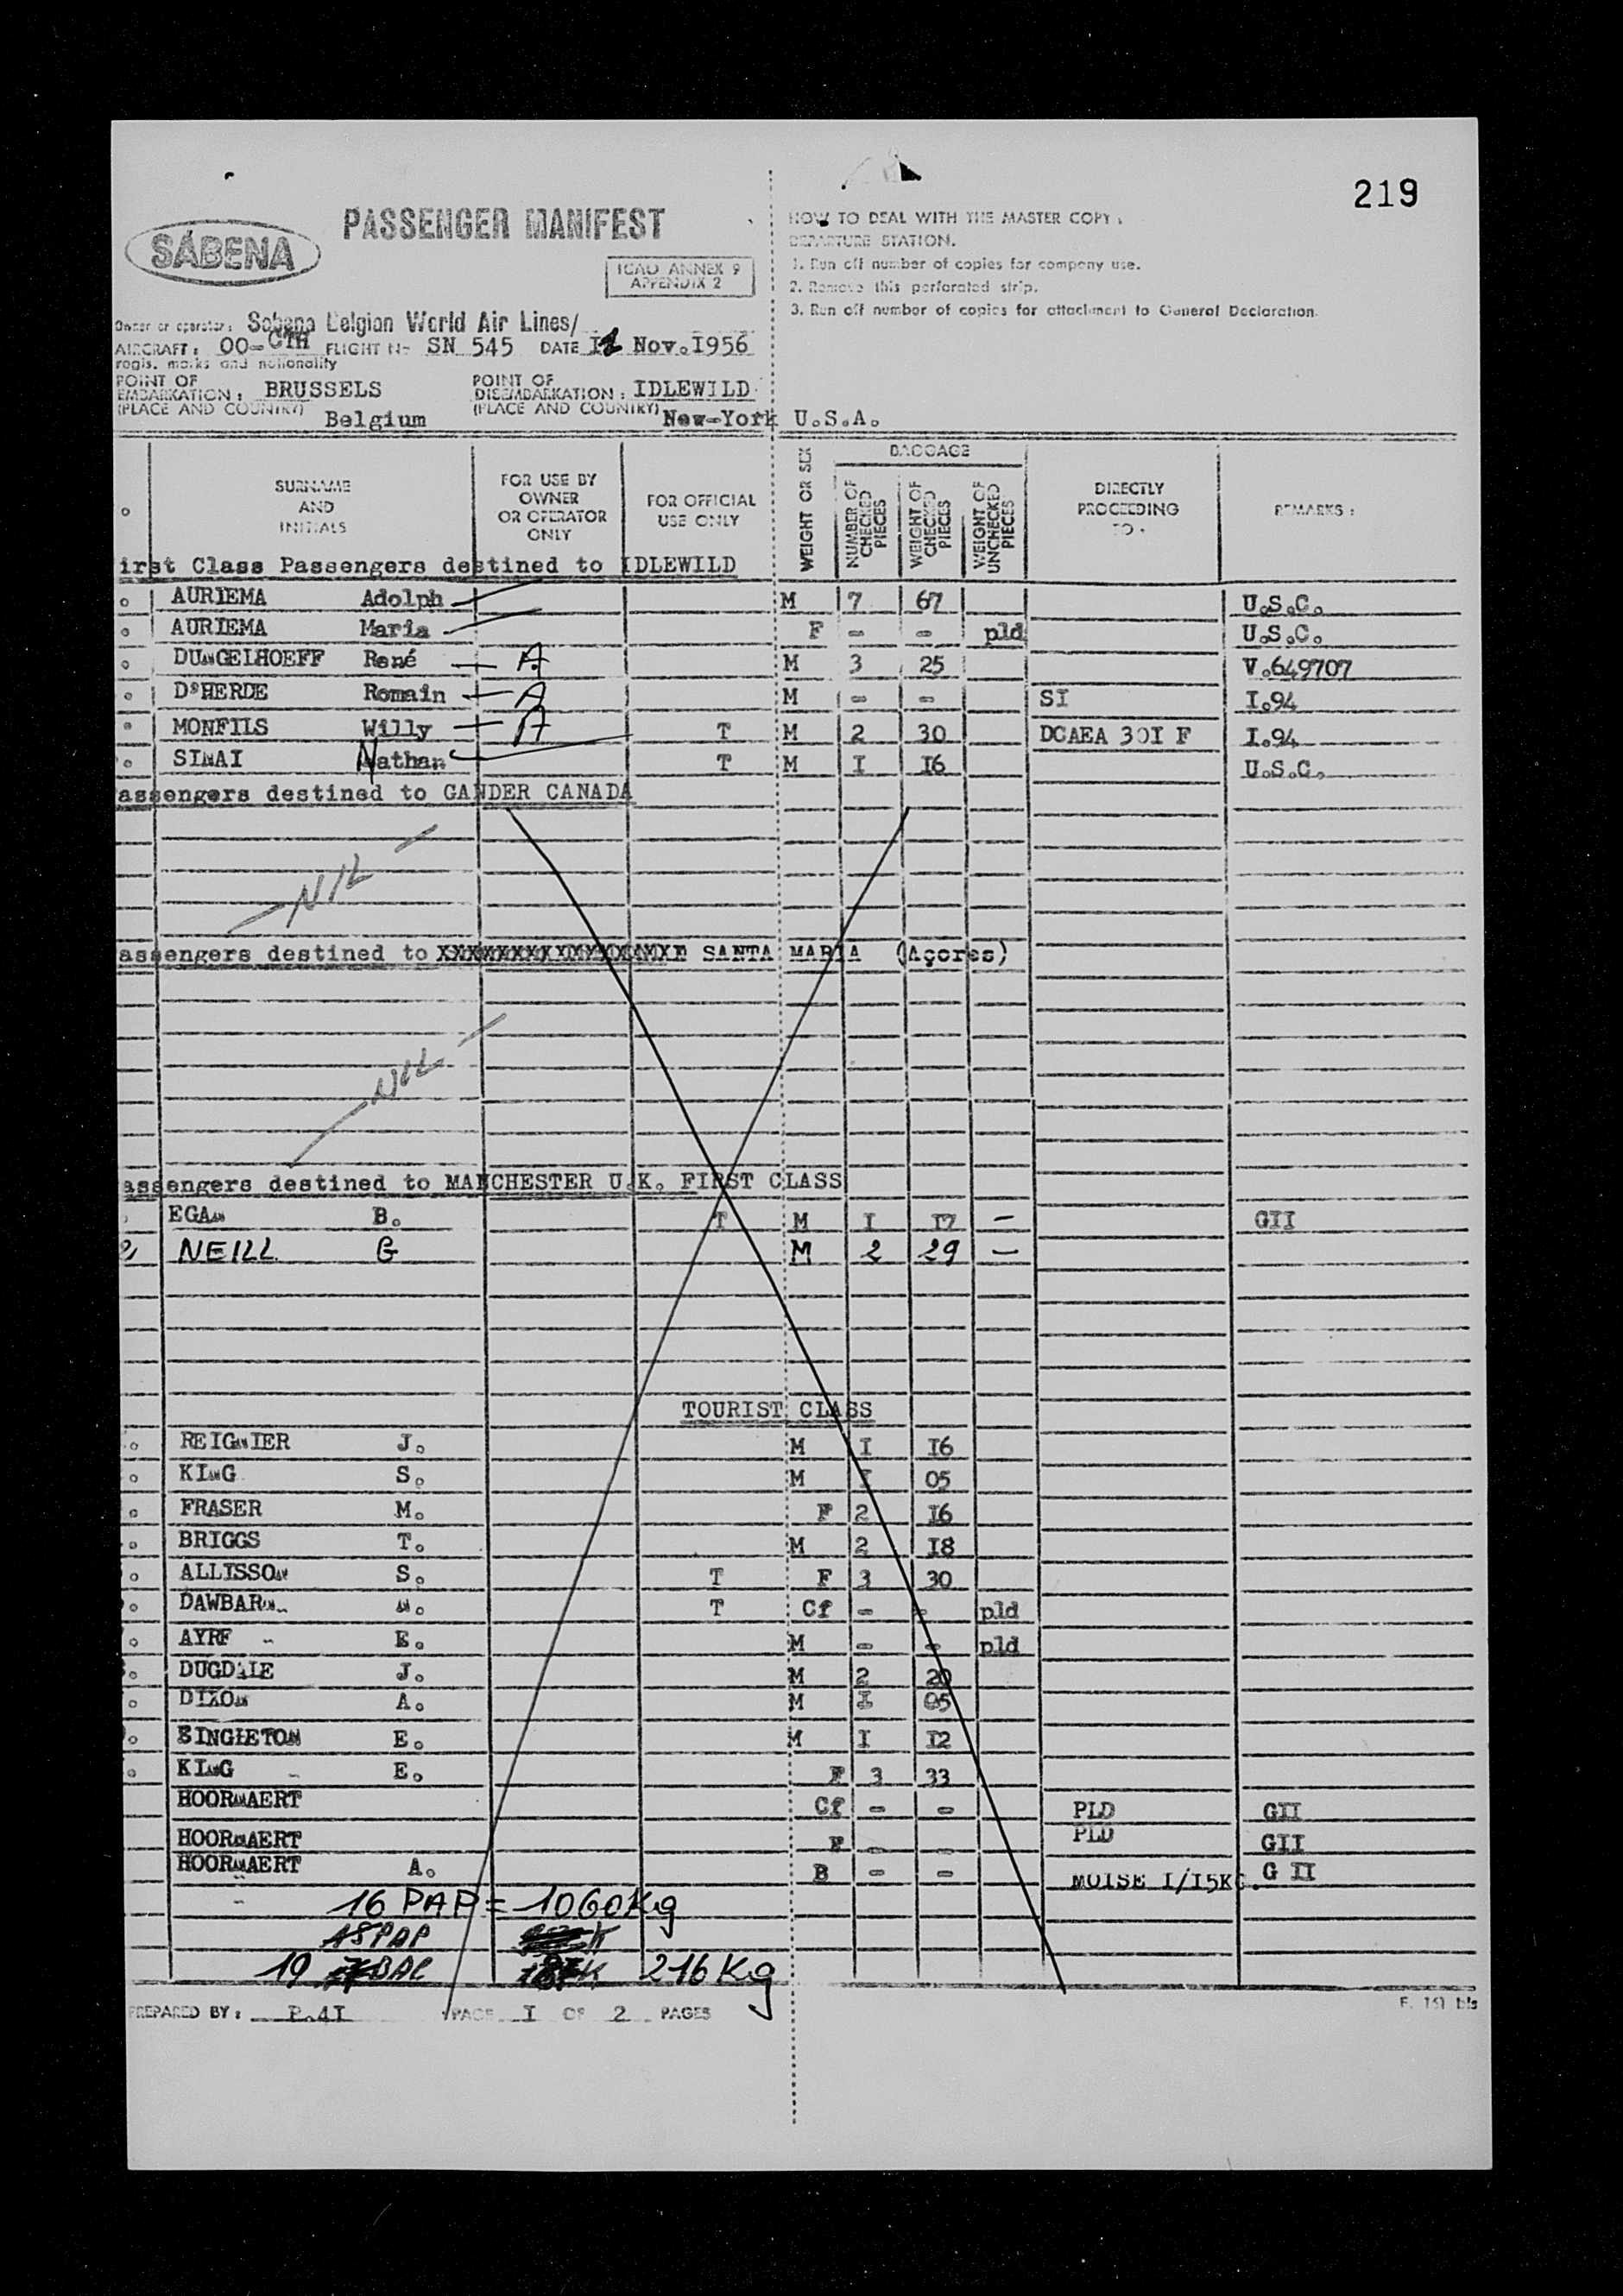 219
SABENA
PASSENGER MANIFEST
ICAO ANNEX 9
APPENDIX 2
HOW TO DEAL WITH THE MASTER COPY :
DEPARTURE STATION.
1. Run off number of copies for company use.
2. Remove this perforated strip.
3. Run off number of copies for attachment to General Declaration.
Owner or operator: Sabena Belgian World Air Lines/
AIRCRAFT: OO-CTH FLIGHT No SN 545 DATE Nov.I956
regis. marks and nationality
POINT OF EMBARKATION : BRUSSELS POINT OF DISEMBARKATION : IDLEWILD
(PLACE AND COUNTRY) Belgium (PLACE AND COUNTRY) New-York U.S.A.
SURNAME AND INITIALS
FOR USE BY OWNER OR OPERATOR ONLY
FOR OFFICIAL USE ONLY
WEIGHT OR SEX
BAGGAGE
NUMBER OF CHECKED PIECES
WEIGHT OF CHECKED PIECES
WEIGHT OF UNCHECKED PIECES
DIRECTLY PROCEEDING TO :
REMARKS :
irst Class Passengers destined to IDLEWILD
AURIEMA Adolph M 7 67 U.S.C.
AURIEMA Maria F - - pld U.S.C.
DUNGELHOEFF René A M 3 25 V.649707
D'HERDE Romain A M - - SI I.94
MONFILS Willy A T M 2 30 DCAEA 30I F I.94
SINAI Nathan T M I I6 U.S.C.
assengers destined to GANDER CANADA
- NIL -
assengers destined to SANTA MARIA (Açores)
- NIL -
assengers destined to MANCHESTER U.K. FIRST CLASS
EGAN B. T M I I7 - GII
2 NEILL G M 2 29 -
TOURIST CLASS
REIGNIER J. M I I6
KING S. M I 05
FRASER M. F 2 I6
BRIGGS T. M 2 I8
ALLISSON S. T F 3 30
DAWBARN N. T Cf - - pld
AYRE E. M - - pld
DUGDALE J. M 2 20
DIXON A. M I 05
SINGLETON E. M I I2
KING E. F 3 33
HOORNAERT Cf - - PLD GII
HOORNAERT F - - PLD GII
HOORNAERT A. B - - MOISE I/I5KG. G II
16 PAP = 1060Kg
15PAP K
19 BAG K 216 Kg
PREPARED BY : P.4I PAGE I OF 2 PAGES
F. 151 bis